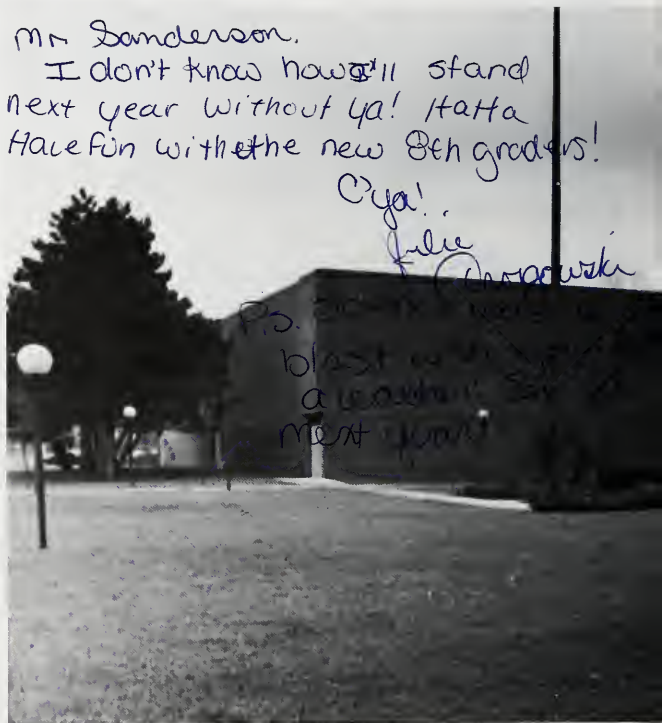 Mr. Sanderson.
I don't know how I'll stand
next year without ya! HaHa
Have fun with the new 8th graders!
C'ya!
Julie
P.S.
blast with
a teacher! See ya
next year!